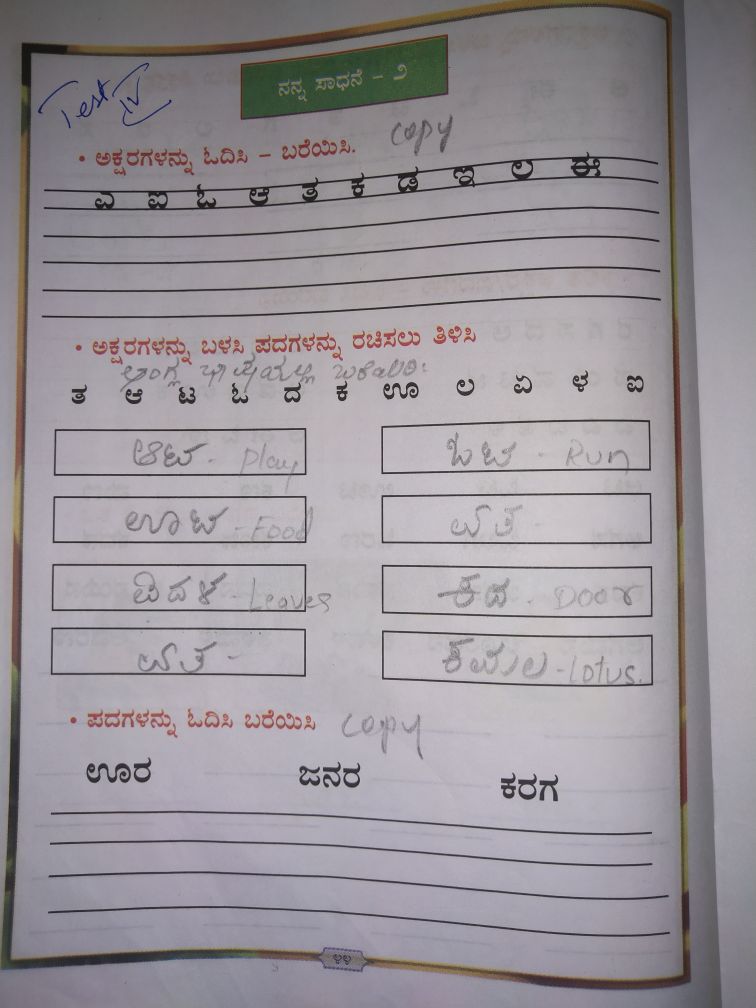 Test IV
ನನ್ನ ಸಾಧನೆ - ೨
• ಅಕ್ಷರಗಳನ್ನು ಓದಿಸಿ - ಬರೆಯಿಸಿ. copy
ಎ ಐ ಓ ಆ ತ ಕ ಡ ಇ ಲ ಈ
• ಅಕ್ಷರಗಳನ್ನು ಬಳಸಿ ಪದಗಳನ್ನು ರಚಿಸಲು ತಿಳಿಸಿ
ತ ಆ ಟ ಓ ದ ಕ ಊ ಲ ಏ ಳ ಐ
ಆಟ - Play ಓಟ - Run
ಊಟ - Food
Leaves ಕದ - Door
ಕಮಲ - Lotus.
• ಪದಗಳನ್ನು ಓದಿಸಿ ಬರೆಯಿಸಿ copy
ಊರ ಜನರ ಕರಗ
೪೪